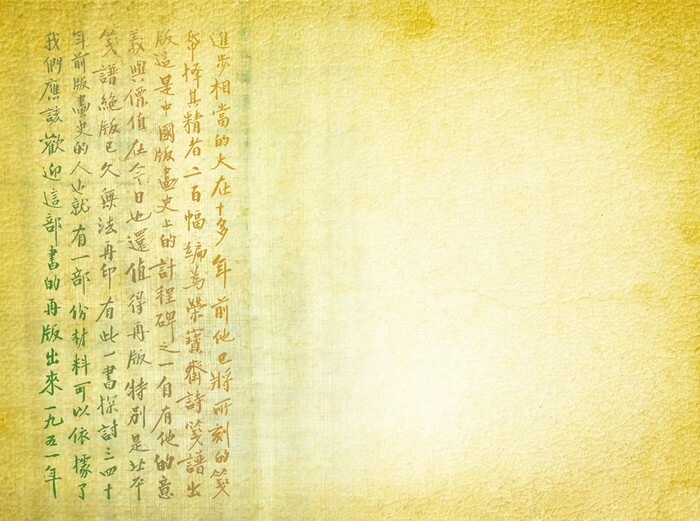 進步相當的大在十多年前他已將所刻的箋
帋擇其精者二百幅編為榮寶齋詩箋譜出
版這是中國版畫史上的計程碑之一自有他的意
義與價值在今日也還值得再版特別是北平
箋譜絕版已久無法再印有此一書探討三四十
年前版畫史的人也就有一部份材料可以依據了
我們應該歡迎這部書的再版出來一九五一年